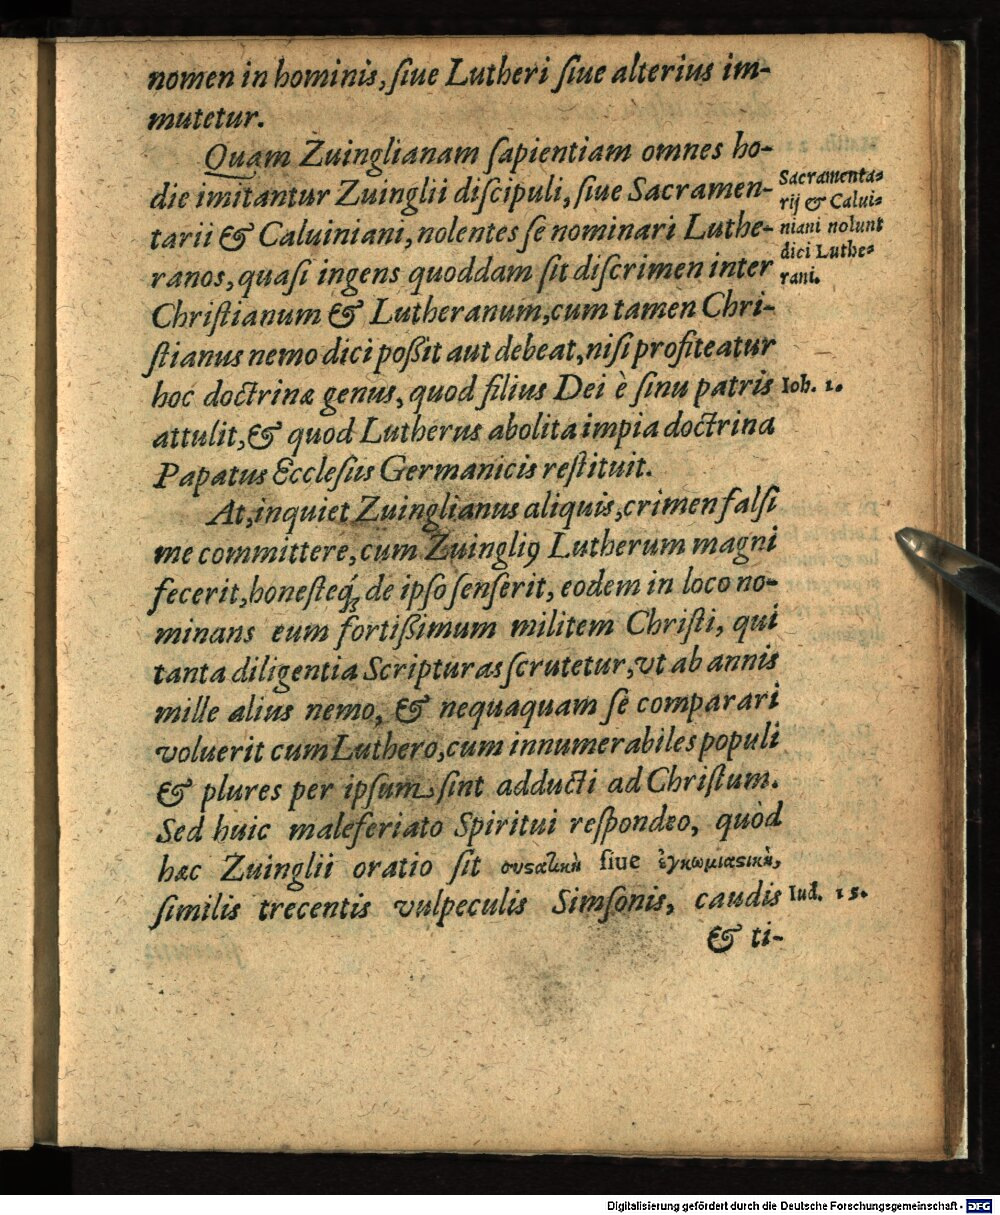 nomen in hominis, ſiue Lutheri ſiue alterius im-
mutetur.
Quam Zuinglianam ſapientiam omnes ho-
die imitantur Zuinglii diſcipuli, ſiue Sacramen-
tarii & Caluiniani, nolentes ſe nominari Luthe-
ranos, quaſi ingens quoddam ſit diſcrimen inter
Chriſtianum & Lutheranum, cum tamen Chri-
ſtianus nemo dici poßit aut debeat, niſi profiteatur
hoc doctrinæ genus, quod filius Dei è ſinu patris
attulit, & quod Lutherus abolita impia doctrina
Papatus Eccleſiis Germanicis reſtituit.
At, inquiet Zuinglianus aliquis, crimen falſi
me committere, cum Zuingliꝰ Lutherum magni
fecerit, honeſteq́ꝫ de ipſo ſenſerit, eodem in loco no-
minans eum fortißimum militem Chriſti, qui
tanta diligentia Scripturas ſcrutetur, vt ab annis
mille alius nemo, & nequaquam ſe comparari
voluerit cum Luthero, cum innumerabiles populi
& plures per ipſum ſint adducti ad Chriſtum.
Sed huic maleferiato Spiritui reſpondeo, quòd
hæc Zuinglii oratio ſit ſiue ἐγκωμιαϛικὴ,
ſimilis trecentis vulpeculis Simſonis, caudis
& ti-
Sacramenta-
rij & Calui-
niani nolunt
dici Luthe-
rani.
Ioh. 1.
Iud. 15.
Digitalisierung gefördert durch die Deutsche Forschungsgemeinschaft - DFG